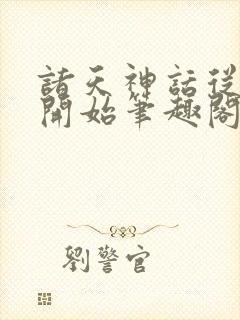 諸天神話從
開始筆趣閣
劉警官